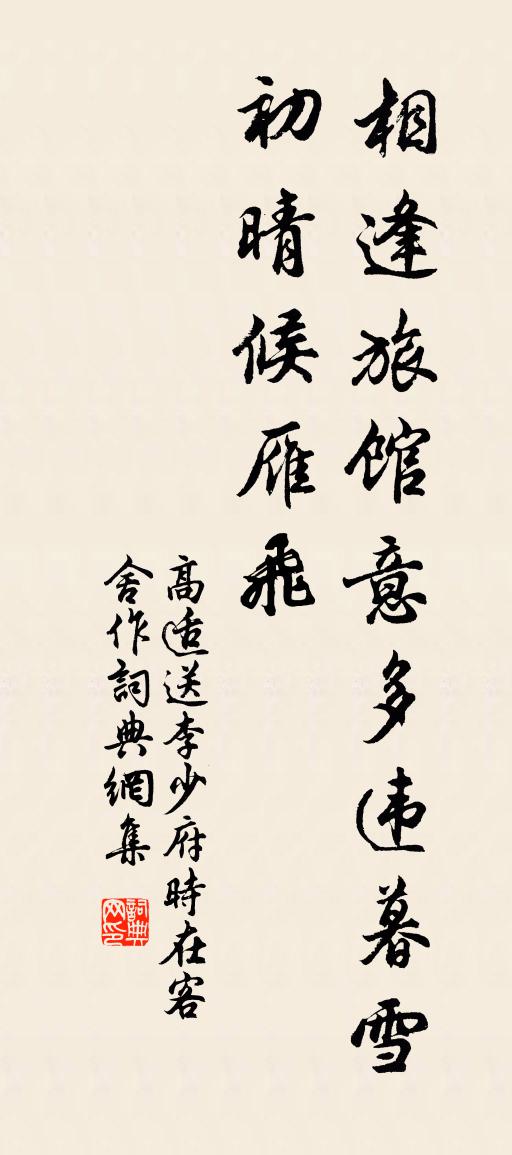 相逢旅馆意多违暮雪
初晴候雁飛
高适送李少府時在客
舍作詞典網集
詞典
网印